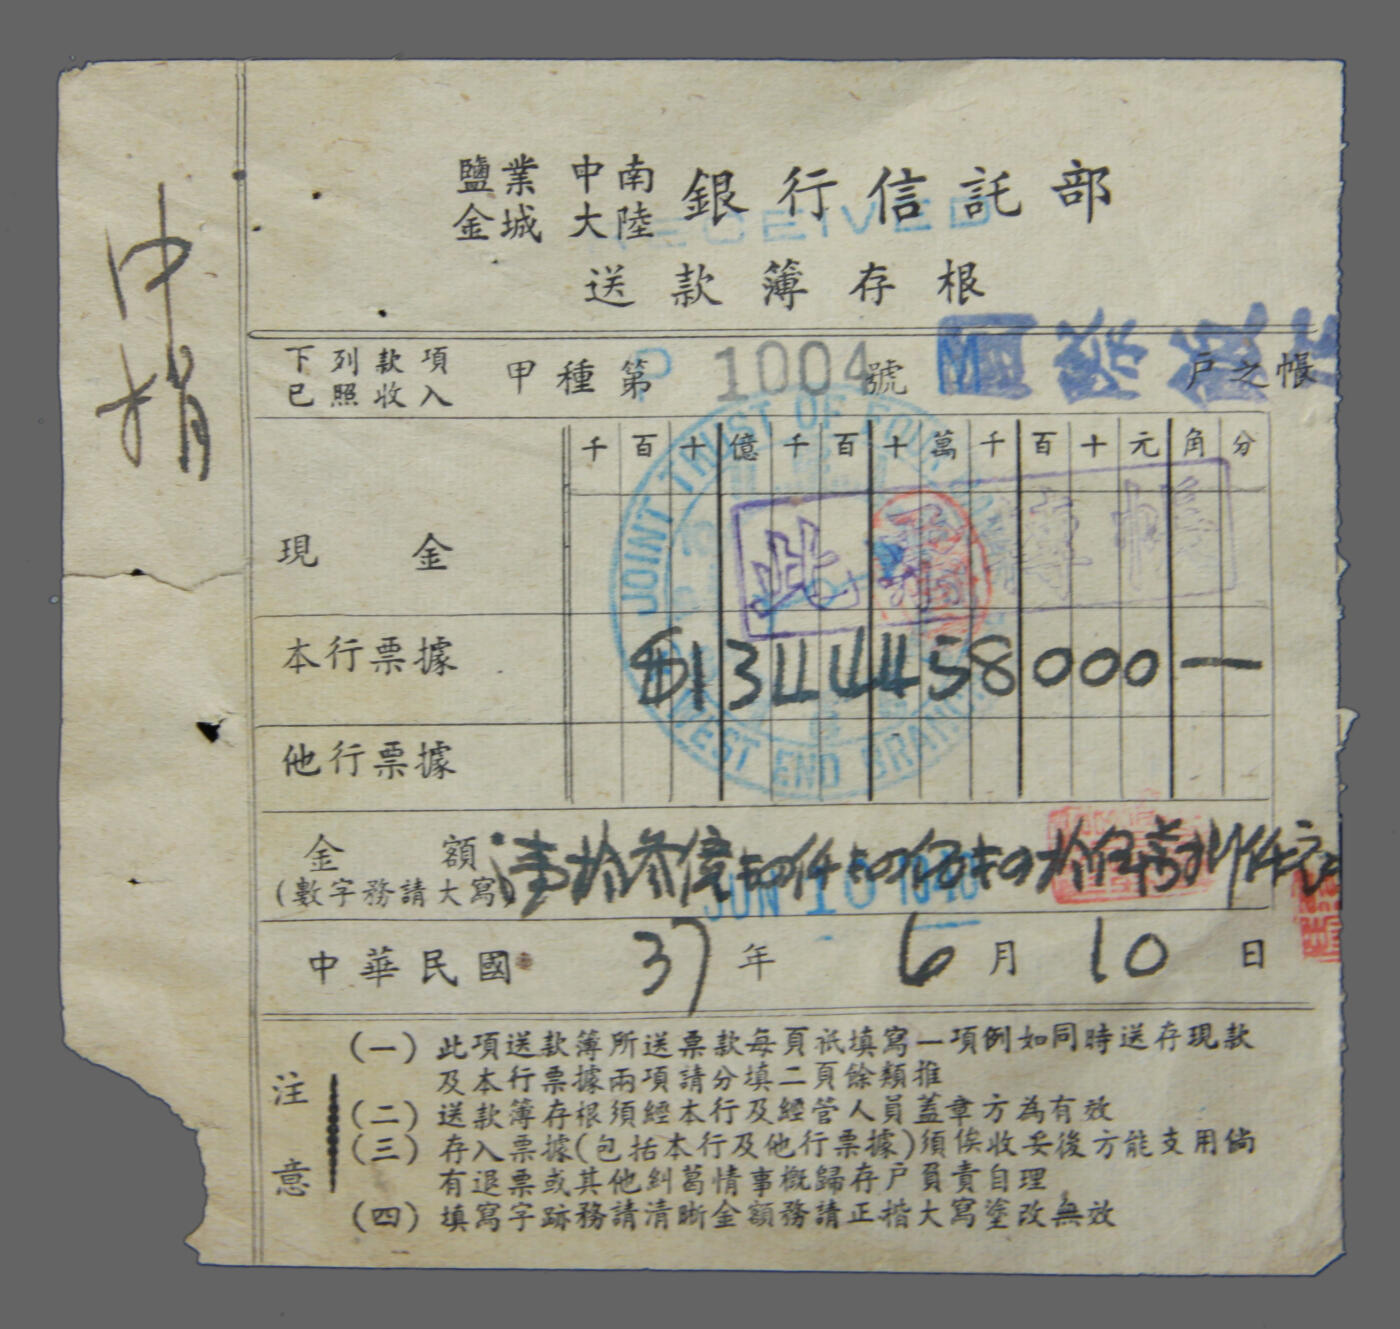 中捐
鹽業 中南 銀行信託部
金城 大陸
RECEIVED
送款簿存根
下列款項 甲種第 P 1004 號 戶之帳
已照收入
千 百 十 億 千 百 十 萬 千 百 十 元 角 分
JOINT TRUST OF FOUR
WEST END BRANCH
現金
本行票據 $1344458000—
他行票據
金額
(數字務請大寫)
JUN 10 1948
中華民國 37 年 6 月 10 日
注意
(一) 此項送款簿所送票款每頁祇填寫一項例如同時送存現款
及本行票據兩項請分填二頁餘類推
(二) 送款簿存根須經本行及經管人員蓋章方為有效
(三) 存入票據(包括本行及他行票據)須俟收妥後方能支用倘
有退票或其他糾葛情事概歸存戶負責自理
(四) 填寫字跡務請清晰金額務請正楷大寫塗改無效